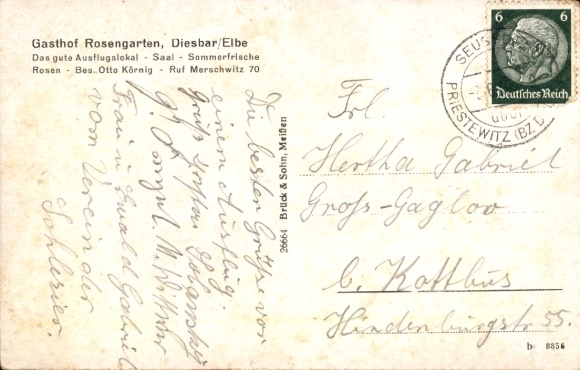 Gasthof Rosengarten, Diesbar/Elbe
Das gute Ausflugslokal - Saal - Sommerfrische
Rosen - Bes. Otto Körnig - Ruf Merschwitz 70
6 6
Deutsches Reich
SEUS
über
PRIESTEWITZ (BZ D
Die besten Grüße von
einem Ausflug.
Gruß
Frau u. Ewald Gabriel
vom Verein der
Schlesier.
26664 Brück & Sohn, Meißen
Frl.
Hertha Gabriel
Groß-Gaglow
b. Kottbus
Hindenburgstr 55.
b 8856